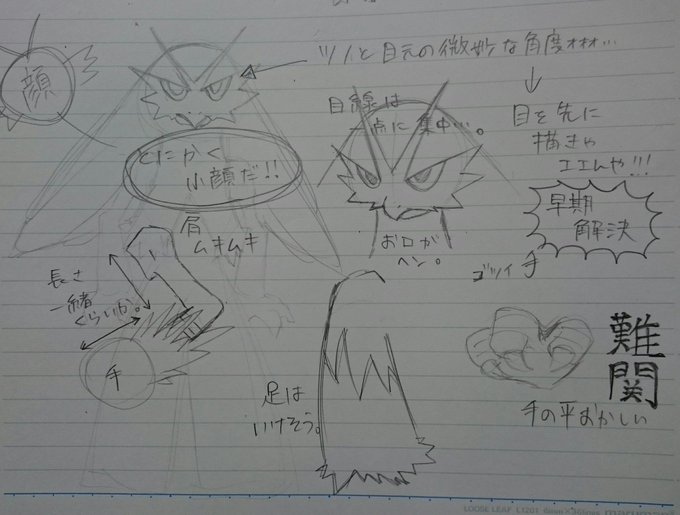 ツノと目元の微妙な角度ォォォ…
顔
目線は
一点に集中…。
目を先に
描きゃ
エエんや!!!
早期
解決
とにかく
小顔だ!!
お口が
ヘン。
肩
ムキムキ
長さ
一緒
ぐらいか。
手
ゴツイ手
難
関
手の平おかしい
足は
いけそう。
LOOSE LEAF L1201